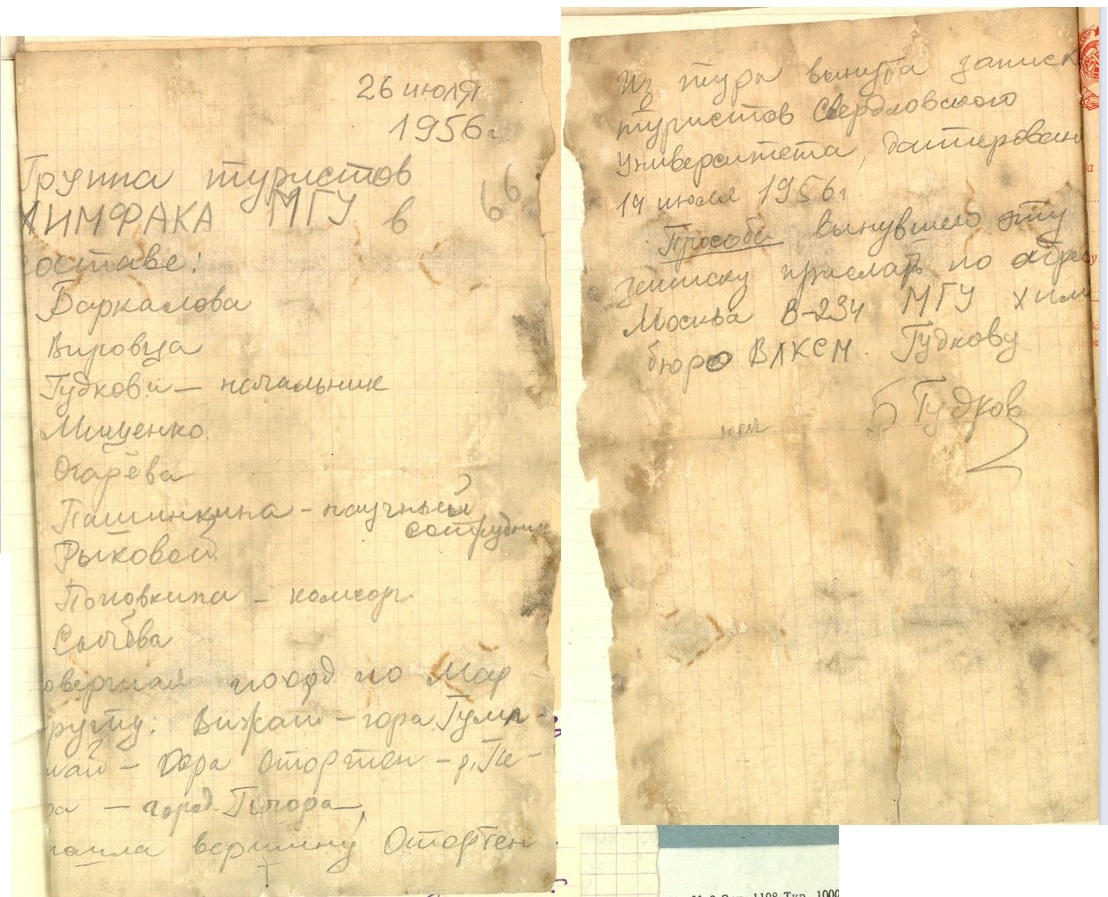 26 июля
1956г.
Группа туристов
ХИМФАКА МГУ в
66
оставе:
Баркалова
Вировца
Гудкова — начальник
Мищенко
Огарёва
Пашинкина – научный
сотрудник
Рыковой
Поповкина – комсорг
Сычёва
овершая поход по мар
руту: Вижай – гора Гумп-
пай – гора Отортен – р. Пе-
ра – город Печора,
ошла вершину Отортен
Из тура вынута записк
туристов Свердловского
Университета, датирован
14 июля 1956г
Просьба вынувшего эту
записку прислать по адре
Москва В-234 МГУ хим
бюро ВЛКСМ. Гудкову
Б Гудков
нач
1108 Тир. 1000